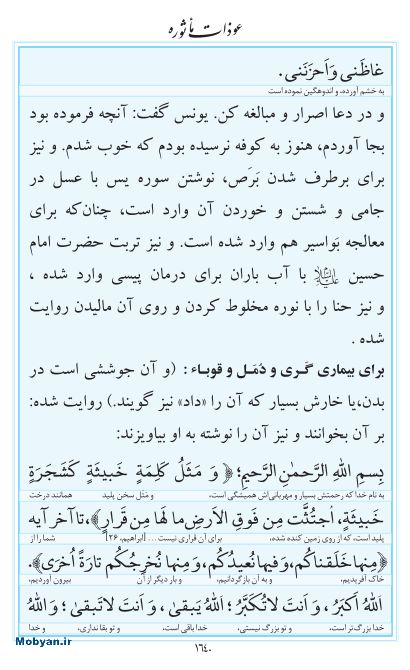 عوذات مأثوره
غاظَنی وَ اَحزَنَنی.
به خشم آورده، و اندوهگین نموده است
و در دعا اصرار و مبالغه کن. یونس گفت: آنچه فرموده بود
بجا آوردم، هنوز به کوفه نرسیده بودم که خوب شدم. و نیز
برای برطرف شدن بَرَص، نوشتن سوره یس با عسل در
جامی و شستن و خوردن آن وارد است، چنان‌که برای
معالجه بَواسیر هم وارد شده است. و نیز تربت حضرت امام
حسین علیه‌السلام با آب باران برای درمان پیسی وارد شده ،
و نیز حنا را با نوره مخلوط کردن و روی آن مالیدن روایت
شده .
برای بیماری گَـری و دُمَـل و قوباء : (و آن جوششی است در
بدن،با خارش بسیار که آن را «داد» نیز گویند.) روایت شده:
بر آن بخوانند و نیز آن را نوشته به او بیاویزند:
بِسمِ اللهِ الرَّحمٰنِ الرَّحیمِ؛ ﴿ وَ مَثَلُ کَلِمَةٍ خَبیثَةٍ کَشَجَرَةٍ
به نام خدا که رحمتش بسیار و مهربانی‌اش همیشگی است، و مَثَل سخن پلید همانند درخت
خَبیثَةٍ، اجتُثَّت مِن فَوقِ الاَرضِ ما لَها مِن قَرارٍ﴾،تا آخر آیه
پلید است، که از روی زمین کنده شده، برای آن قراری نیست ... [ابراهیم، ۲۶] شما را از
﴿مِنها خَلَقناکُم،وَفیها نُعیدُکُم،وَمِنها نُخرِجُکُم تارَةً اُخرَی﴾.
خاک آفریدیم، و به آن بازگردانیم، و بار دیگر از آن بیرون آوردیم،
اَللهُ اَکبَرُ ، وَ اَنتَ لاتُکَبَّرُ ؛ اَللهُ یَبقیٰ ، وَ اَنتَ لاتَبقیٰ ؛ وَ اللهُ
خدا بزرگ‌تر است، و تو بزرگ نیستی، خدا باقی است، و تو بقا نداری، و خدا
۱۶۴۰
Mobyan.ir